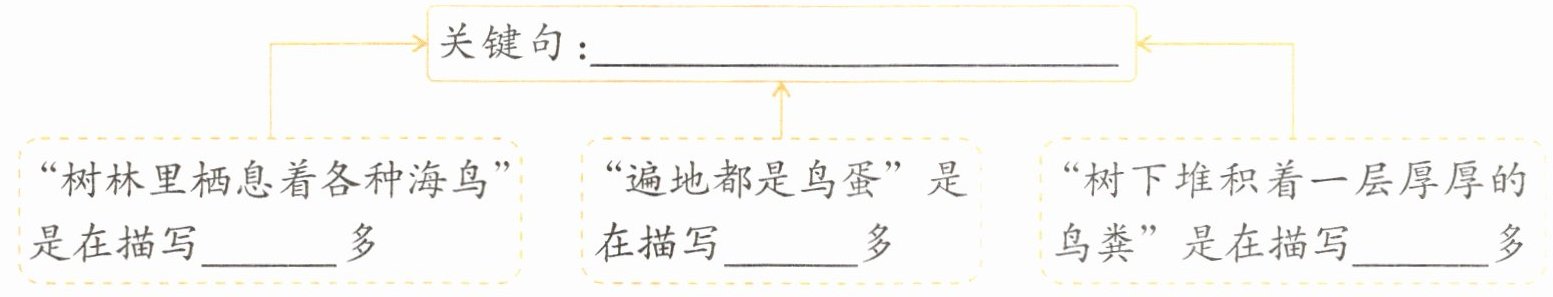 关键句：____________________
“树林里栖息着各种海鸟”
是在描写______多
“遍地都是鸟蛋”是
在描写______多
“树下堆积着一层厚厚的
鸟粪”是在描写______多